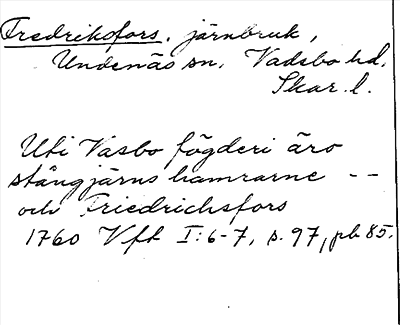 Fredriksfors, järnbruk,
Undenäs sn, Vadsbo hd,
Skar. l.
Uti Vasbo fögderi äro
stångjärns hamrarne --
och Friedrichsfors
1760 Vft I:6-7, s. 97, pb 85.